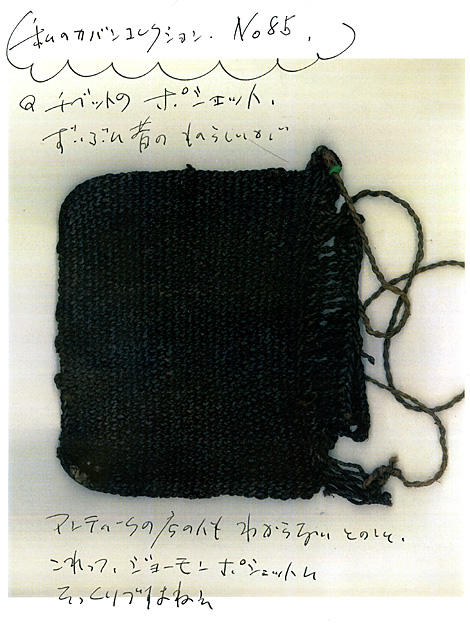 私のカバンコレクション. No85.
チベットの ポシェット.
ずいぶん昔の ものらしいが
アンティークの店の人も わからない とのこと.
これって、ジョーモンポシェットに
そっくりですよねえ